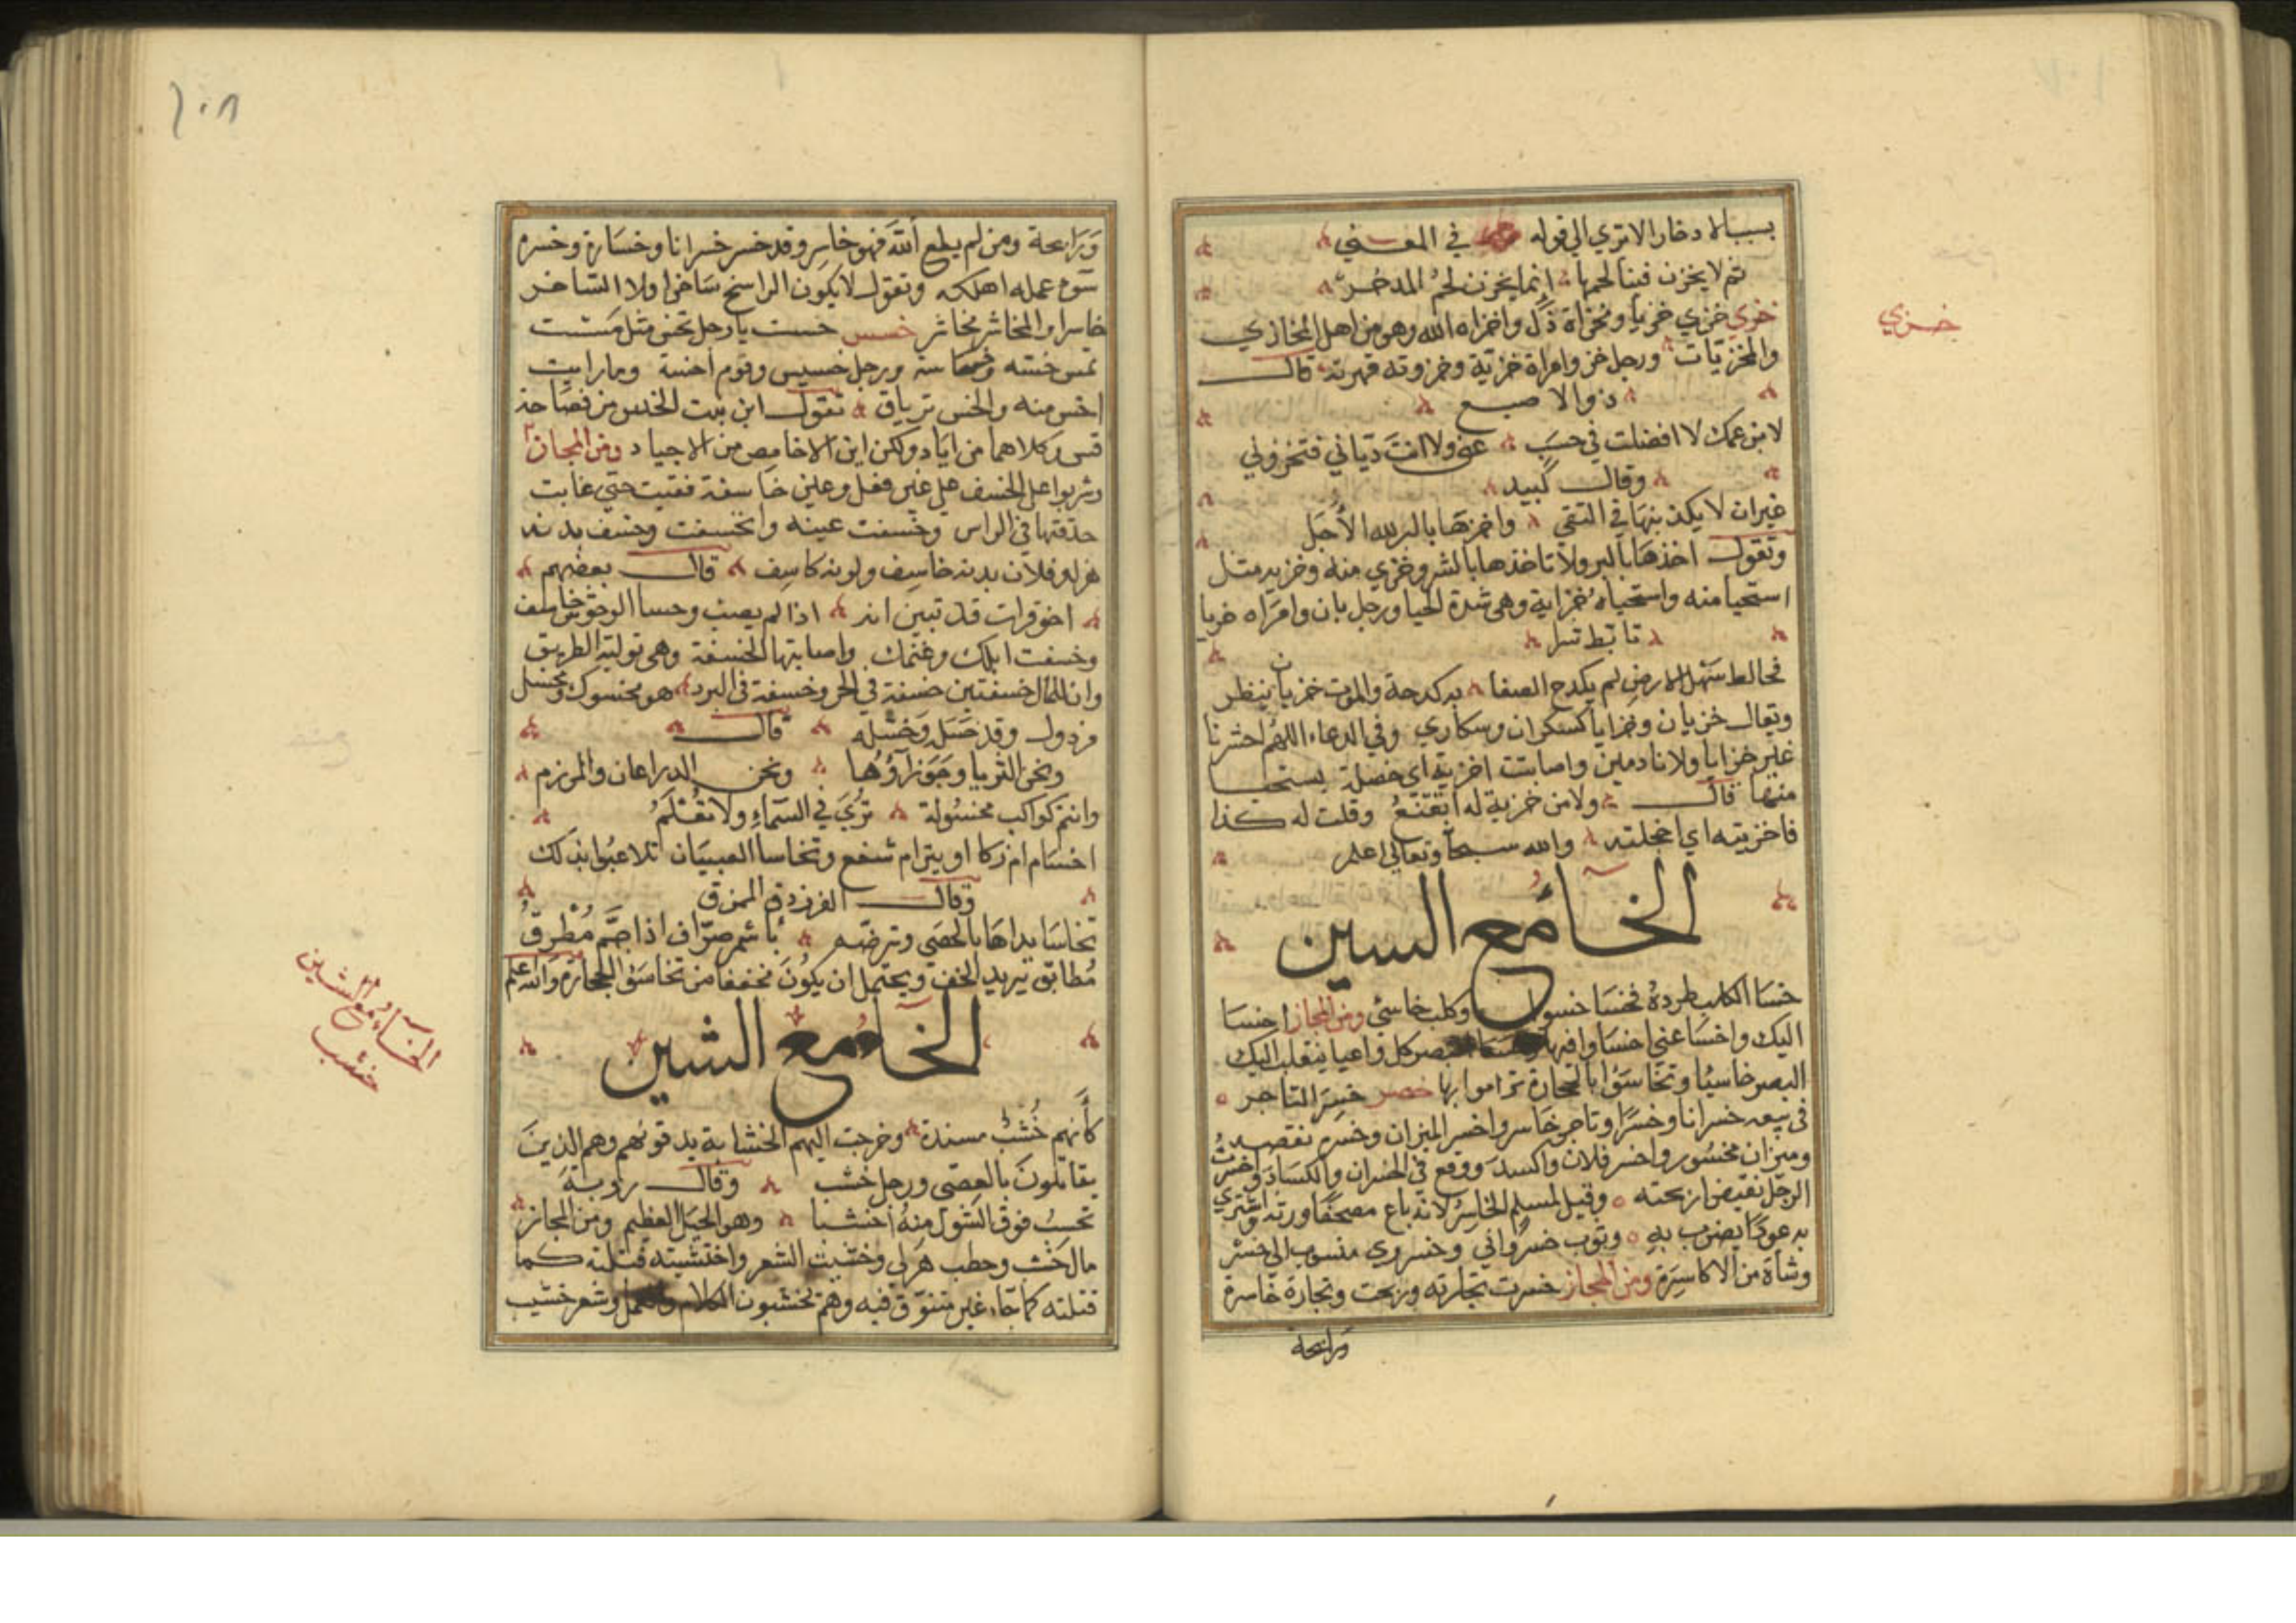 بسبب الادخار الا تري الي قوله في المعني
ثم لا يخزن فينا لحمها انما يخزن لحم المدخر
خزي خزي خزيا ومخزاة ذل واخزاه الله وهو من اهل المخازي
والمخزيات ورجل خز وامراة خزية وخزوته قهرته قال
ذو الاصبع
لابن عمك لا افضلت في حسب عني ولا انت دياني فتخزوني
وقال لبيد
غير ان لا يكذبنها في التقي واخزها بالبر لله الاجل
وتقول اخذها بالبر ولا تاخذها بالشر وخزي منه وخزيه مثل
استحيا منه واستحياه خزاية وهي شدة الحيا ورجل بان وامراه خزيا
تابط شرا
فخالط سهل الارض لم يكدح الصفا به كدحة والموت خزيان ينظر
ويقال خزيان وخزايا كسكران وسكاري وفي الدعاء اللهم احشرنا
غير خزايا ولا نادمين واصابتنا خزية اي خصلة يستحيا
منها قال ولا من خزية له اتقنع وقلت له كذا
فاخزيته اي اخجلته والله سبحا وتعالي اعلم
الخاء مع السين
خسا الكلب طرده فخسا خسوا وكلب خاسئ ومن المجاز اخسا
اليك واخسا عني اخساوا فيها البصر كل واعيا ينقلب اليك
البصر خاسيا وتخاسؤا بالحجارة تراموا بها خسر خسر التاجر
في بيعه خسرانا وخسرا وتاجر خاسر واخسر الميزان وخسره نقصه
وميزان مخسور واخسر فلان واكسد ووقع في الخسران والكساد واخسرت
الرجل نقيض اربحته وقيل لمسلم الخاسر لانه باع مصحفا ورثه واشتري
به عودا يضرب به وثوب خسرواني وخسروي منسوب الي خسر
وشاه من الاكاسرة ومن المجاز خسرت تجارته وربحت وتجارة خاسرة
ورابحة
خزي
١٠٨
ورابحة ومن لم يطع الله فهو خاسر وقد خسر خسرانا وخسارة وخسره
سوء عمله اهلكه وتقول لا يكون الراسخ ساخرا ولا الساخر
خاسرا والمخاشر مخاشر خسس خسست يا رجل تخس مثل مسست
تمس خسة وخساسة ورجل خسيس وقوم اخسة وما رايت
اخس منه والخس ترياق تقول اين بنت الخس من فصاحة
قس وكلاهما من اياد ولكن اين الاخامص من الاجياد ومن المجاز
وشربوا علي الخسف علي غير فعل وعين خاسفة فقيت حتي غابت
حدقتها في الراس وخسفت عينه وانخسفت وخسف بدنه
هزل وفلان بدنه خاسف ولونه كاسف قال بعضهم
اخو قرات قد تبين انه اذا لم يصب وحسا الوحوش خاسف
وخسفت ابلك وغنمك واصابتها الخسفة وهي تولية الطريق
وان للمال خسفتين خسفة في الحر وخسفة في البرد هو مخسول ومخسل
مرذول وقد خسل وخسله قال
ونحن الثريا وجوزآؤها ونحن الدراعان والمرزم
وانتم كواكب مخسولة تري في السماء ولا تعلم
اخسا ام زكا او يترام شفع وتخاسا الصبيان تلاعبوا بذلك
وقال الفرزدق الممزق
تخاسا يداها بالحصي وترضه باسمر صراف اذا جم مطرق
مطابق يريد الخف ويحتمل ان يكون مخففا من تخاسؤا الحجارة والله اعلم
الخاء مع الشين
كانهم خشب مسندة وخرجت اليهم الخشابة يدقونهم وهم الذين
يقاتلون بالعصي ورجل خشب وقال روبة
تحسب فوق الشول منه اخشبا وهو الجبل العظيم ومن المجاز
مال خشب وحطب هزلي وخشبت الشعر واختشبته قتلته كما
قتلته كما جاء غير متنوق فيه وهم يخشبون الكلام والعمل وشعر خشيب
الخاء مع الشين
خشب